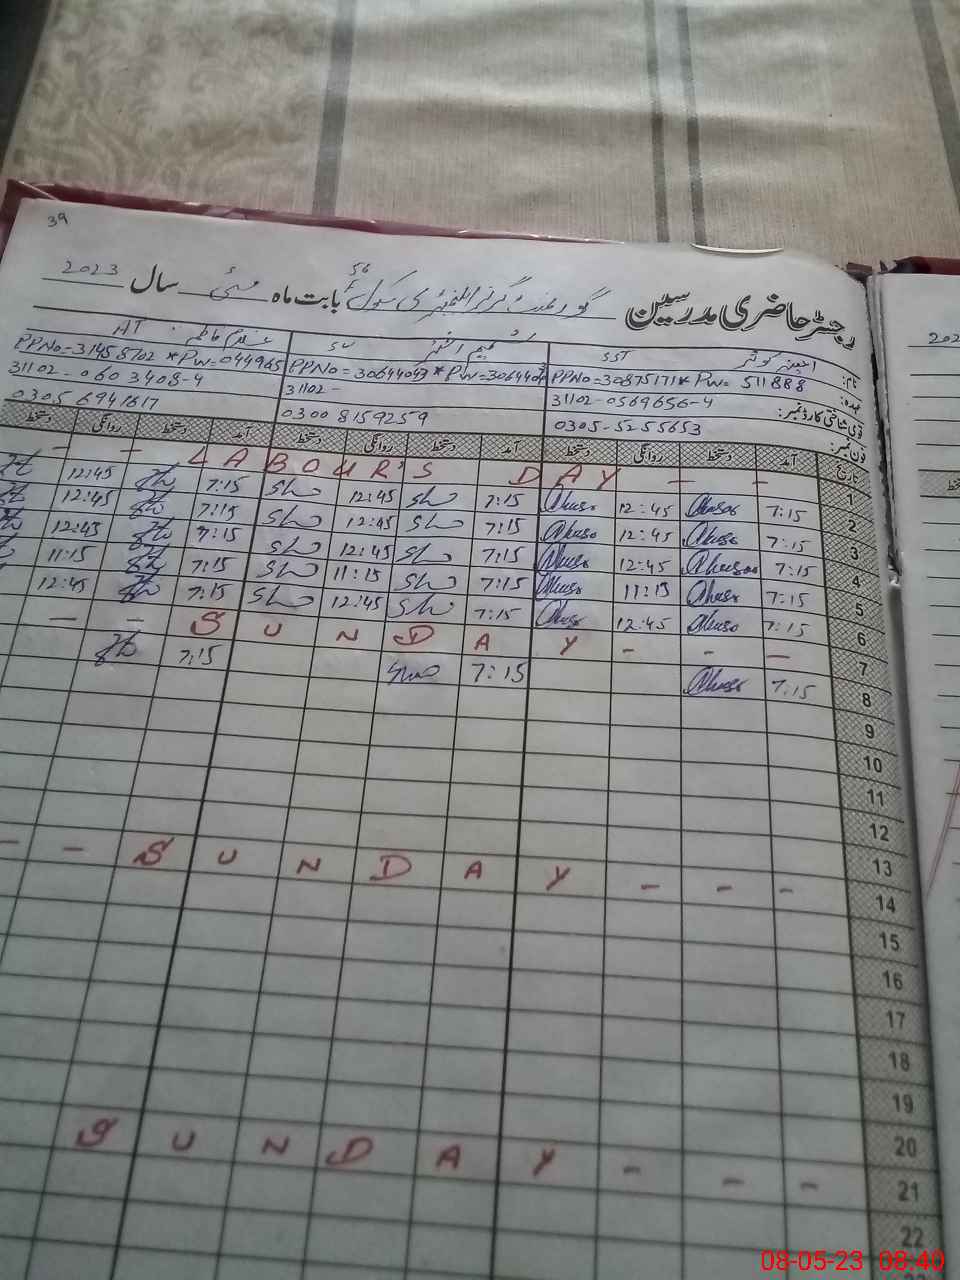 39
رجسٹر حاضری مدرسین گورنمنٹ گرلز ایلیمنٹری سکول 56 بابت ماہ مئی سال 2023
نام: SST SV AT
PPNo=30875171* Pw= 511888 PPNo=30644043*Pw=3064404 PPNo=31458702 *Pw=044965
عہدہ:
قومی شناختی کارڈ نمبر: 31102-0569656-4 31102- 31102-0603408-4
فون نمبر: 0305-5255653 0300 8159259 0305 6941617
تاریخ آمد دستخط روانگی دستخط آمد دستخط روانگی دستخط آمد دستخط روانگی دستخط
1 - - LABOUR'S DAY - -
2 7:15 12:45 7:15 12:45 7:15 12:45
3 7:15 12:45 7:15 12:45 7:15 12:45
4 7:15 12:45 7:15 12:45 7:15 12:45
5 7:15 11:15 7:15 11:15 7:15 11:15
6 7:15 12:45 7:15 12:45 7:15 12:45
7 - - SUNDAY - - -
8 7:15 7:15 7:15
9
10
11
12
13
14 - - SUNDAY - - -
15
16
17
18
19
20
21 SUNDAY - - -
22
202
08-05-23 08:40